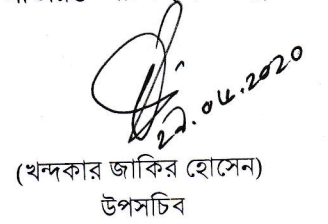 ২৯.০৪.২০২০
(খন্দকার জাকির হোসেন)
উপসচিব